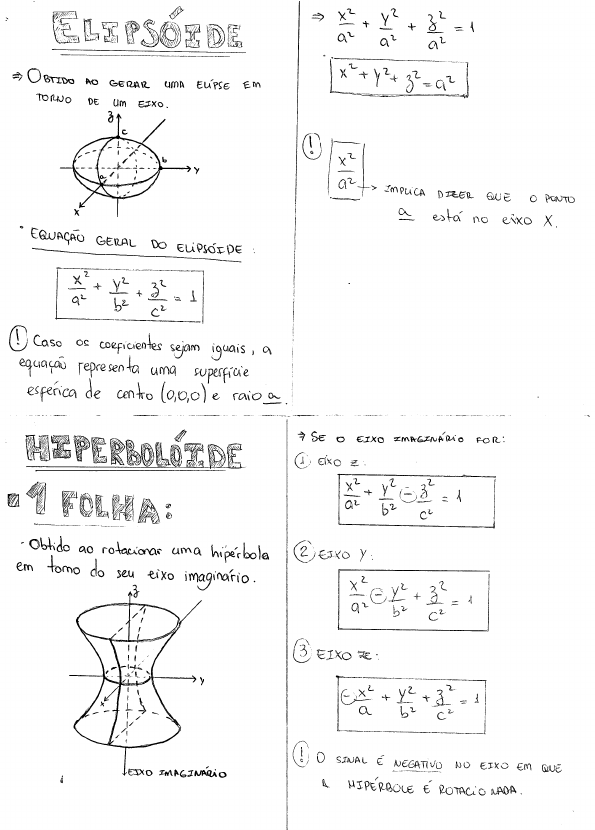 ELIPSÓIDE
⇒ OBTIDO AO GERAR UMA ELIPSE EM
TORNO DE UM EIXO.
z
c
b
y
a
x
• EQUAÇÃO GERAL DO ELIPSÓIDE:
x²/a² + y²/b² + z²/c² = 1
! Caso os coeficientes sejam iguais, a
equação representa uma superfície
esférica de centro (0,0,0) e raio a.
⇒ x²/a² + y²/a² + z²/a² = 1
x² + y² + z² = a²
! x²/a² → IMPLICA DIZER QUE O PONTO
a está no eixo X.
HIPERBOLÓIDE
▪ 1 FOLHA:
· Obtido ao rotacionar uma hipérbole
em torno do seu eixo imaginário.
z
y
x
EIXO IMAGINÁRIO
⇒ SE O EIXO IMAGINÁRIO FOR:
1 EIXO Z:
x²/a² + y²/b² − z²/c² = 1
2 EIXO Y:
x²/a² − y²/b² + z²/c² = 1
3 EIXO X:
− x²/a + y²/b² + z²/c² = 1
! O SINAL É NEGATIVO NO EIXO EM QUE
A HIPÉRBOLE É ROTACIONADA.